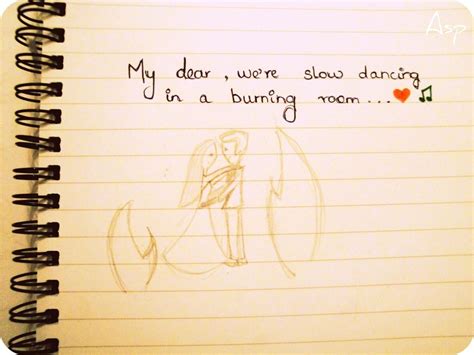 Asp
My dear, we're slow dancing
in a burning room...